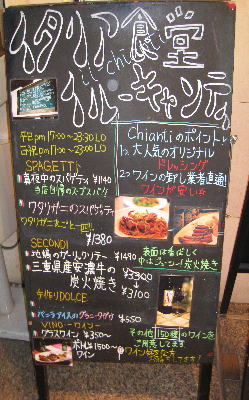 イタリア食堂
il chianti
イル キャンティ
平日pm17:00〜23:30LO
日祝pm17:00〜23:00LO
SPAGETTI
真夜中のスパゲティ ¥1140
ワタリガニのスパゲティ
¥1380
SECONDI
地鶏のガーリックソテー ¥1490
三重県産安濃牛の
炭火焼き
¥3300→
¥3100
手作りDOLCE
バニラアイスのグラニータガケ ¥550
VINO-ワイン-
グラスワイン ¥350〜
ボトル ¥1500〜
ワイン
Chiantiのポイント
1つ大人気のオリジナル
ドレッシング
2つワインの卸し業者直通!
ワインが安い☆
表面は香ばしく
中はジューシー!炭火焼き
その他150種のワインを
ご用意してます